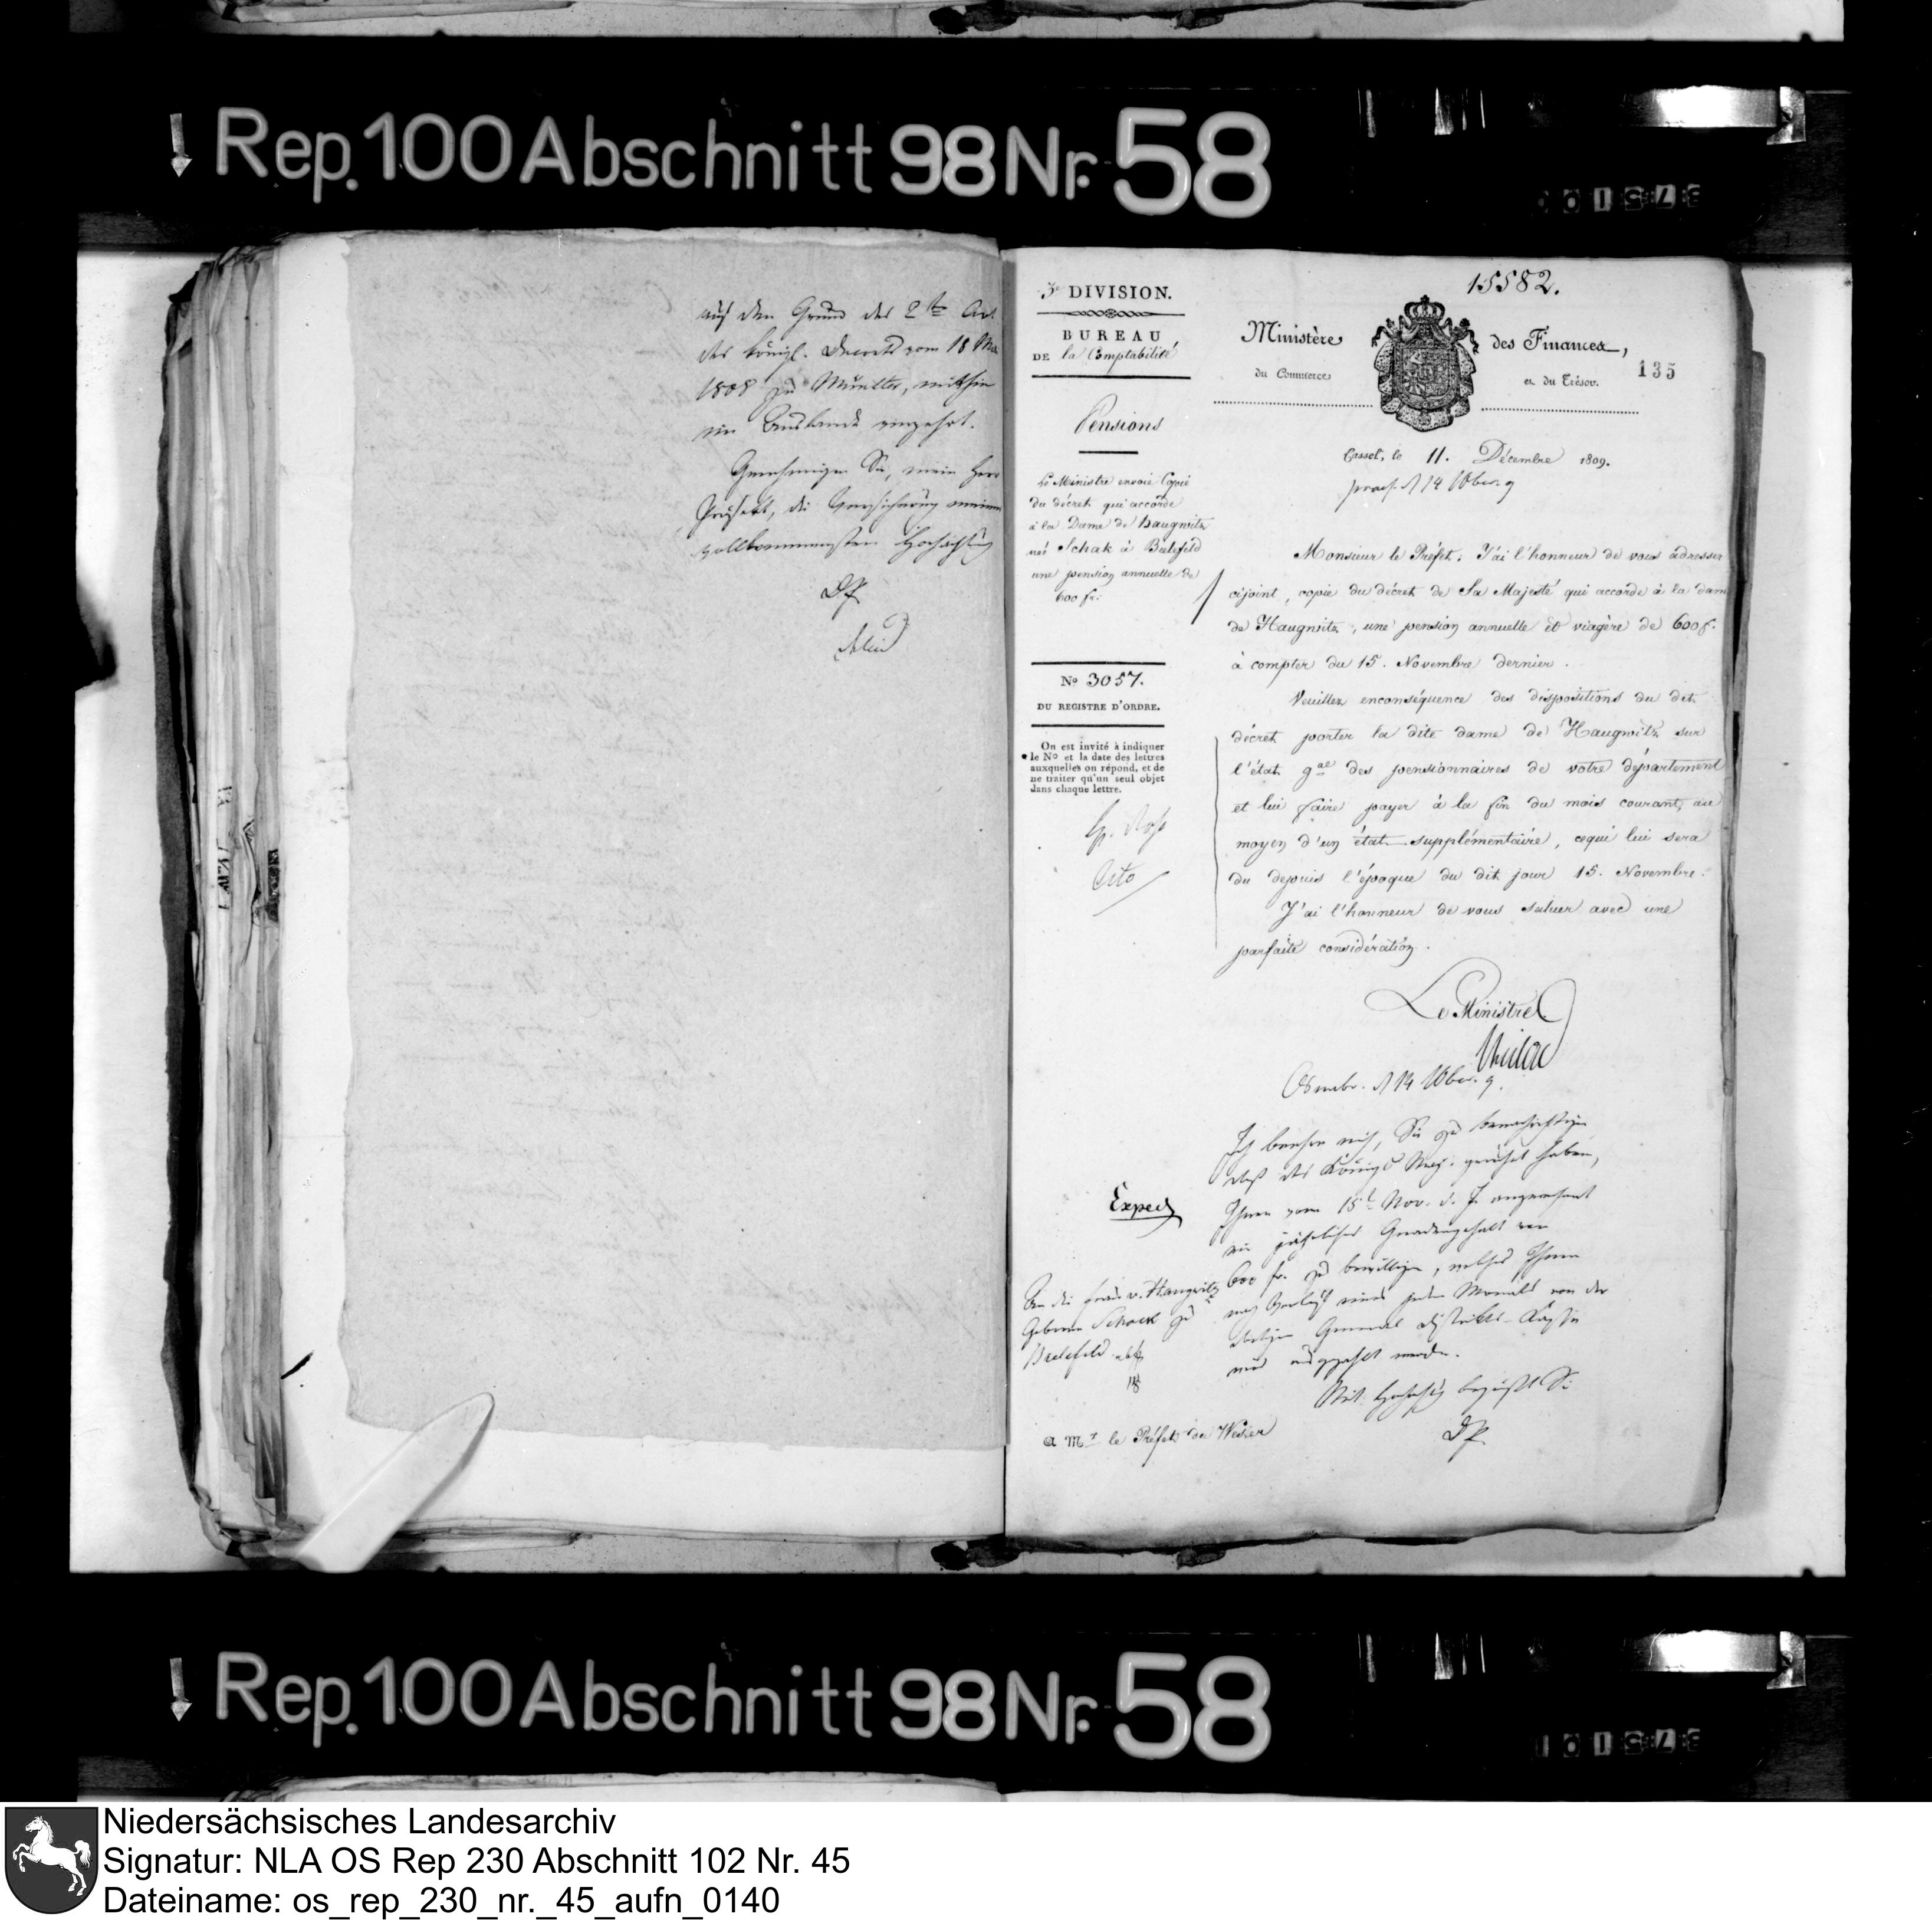 Rep. 100 Abschnitt 98 Nr. 58
auf den Grund des 2ten Art.
des Königl. Decrets vom 18
1808 zu Münster, mithin
im Auslande verzehrt.
Genehmigen Sie, mein Herr
Präfect, die Versicherung meiner
vollkommensten Hochachtung
D. P.
3e DIVISION.
BUREAU
DE la Comptabilité
Pensions
Le Ministre envoie Copie
du décret qui accorde
à la Dame de Haugwitz
née Schak à Bielefeld
une pension annuelle de
600 fr.
No 3057.
DU REGISTRE D'ORDRE.
On est invité à indiquer
le No et la date des lettres
auxquelles on répond, et de
ne traiter qu'un seul objet
dans chaque lettre.
Cito
15582.
Ministère des Finances,
du Commerce et du Trésor.
135
Cassel, le 11. Décembre 1809.
praes. d 14 Xber. 9
Monsieur le Préfet. J'ai l'honneur de vous adresser
cijoint, copie du décret de Sa Majesté qui accorde à la dame
de Haugwitz, une pension annuelle et viagère de 600 f.
à compter du 15. Novembre dernier.
Veuillez enconséquence des dispositions du dit
décret porter la dite dame de Haugwitz sur
l'état gal des pensionnaires de votre département
et lui faire payer à la fin du mois courant, au
moyen d'un état supplémentaire, cequi lui sera
du depuis l'époque du dit jour 15. Novembre.
J'ai l'honneur de vous saluer avec une
parfaite considération.
Le Ministre
Osnabr. d 14 Xber. 9.
Ich beehre mich, Sie zu benachrichtigen
daß des Königs Maj. geruhet haben,
Ihnen vom 15t Nov. d. J. angerechnet
ein jährliches Gnadengehalt von
600 fr. zu bewilligen, welches Ihnen
nach Verlauf eines jeden Monats von der
General Districts-Kasse
wird ausgezahlt werden.
Mit Hochachtung begrüßt Sie
D. P.
Exped
An die Frau v. Haugwitz
geborene Schack zu
Bielefeld
a Mr le Préfet du Weser
Rep. 100 Abschnitt 98 Nr. 58
Niedersächsisches Landesarchiv
Signatur: NLA OS Rep 230 Abschnitt 102 Nr. 45
Dateiname: os_rep_230_nr._45_aufn_0140